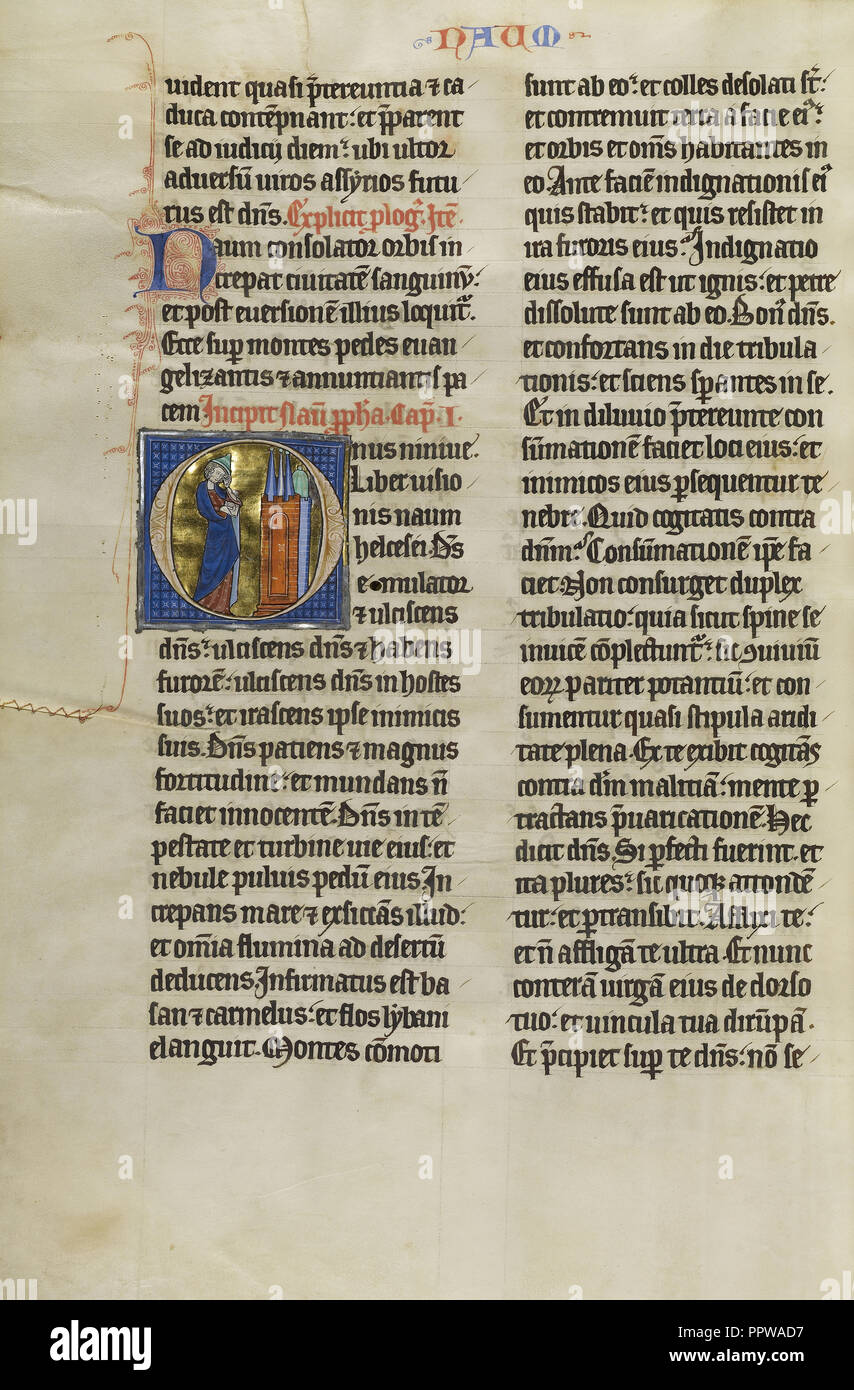 NAUM
uident quasi p̄tereuntia ⁊ ca
duca contēpnant: et p̄parent
se ad iudicij diem: ubi ultor
aduersū uiros assyrios futu
rus est dn̄s. Explicit plog̾. Itē.
Naum consolator orbis in
crepat ciuitatē sanguinū:
et post euersionē illius loquit̾.
Ecce sup montes pedes euan
gelizantis ⁊ annuntiantis pa
cem Incipit Naū pph̄a. Cap̄. I.
Onus niniue.
Liber uisio
nis naum
helcesei. D̄s
emulator
⁊ ulciscens
dn̄s: ulciscens dn̄s ⁊ habens
furorē: ulciscens dn̄s in hostes
suos: et irascens ipse inimicis
suis. Dn̄s patiens ⁊ magnus
fortitudine: et mundans n̄
faciet innocentē. Dn̄s in tē
pestate et turbine uie eius: et
nebule puluis pedū eius. In
crepans mare ⁊ exsiccās illud:
et om̄ia flumina ad desertū
deducens. Infirmatus est ba
san ⁊ carmelus: et flos lybani
elanguit. Montes cōmoti
sunt ab eo: et colles desolati st̄:
et contremuit terra a facie ei᷒:
et orbis et om̄s habitantes in
eo. Ante faciē indignationis ei᷒
quis stabit: et quis resistet in
ira furoris eius: Indignatio
eius effusa est ut ignis: et petre
dissolute sunt ab eo. Bon᷒ dn̄s.
et confortans in die tribula
tionis: et sciens sperantes in se.
Et in diluuio p̄tereunte con
sūmationē faciet loci eius: et
inimicos eius psequentur te
nebre. Quid cogitatis contra
dn̄m: Consūmationē ipe fa
ciet. Non consurget duplex
tribulatio: quia sicut spine se
inuicē cōplectunt̾: sic ↄuiuiū
eoꝝ pariter potantiū: et con
sumentur quasi stipula aridi
tate plena. Ex te exibit cogitās
contra dn̄m malitiā: mente p
tractans p̄uaricationē. Hec
dicit dn̄s. Si pfecti fuerint. et
ita plures: sic quoꝗ attondē
tur: et ptransibit. Afflixi te:
et n̄ affligā te ultra. Et nunc
conterā uirgā eius de dorso
tuo: et uincula tua dirūpā.
Et p̄cipiet sup te dn̄s: nō se
a alamy
a
alamy
Image ID: PPWAD7
www.alamy.com